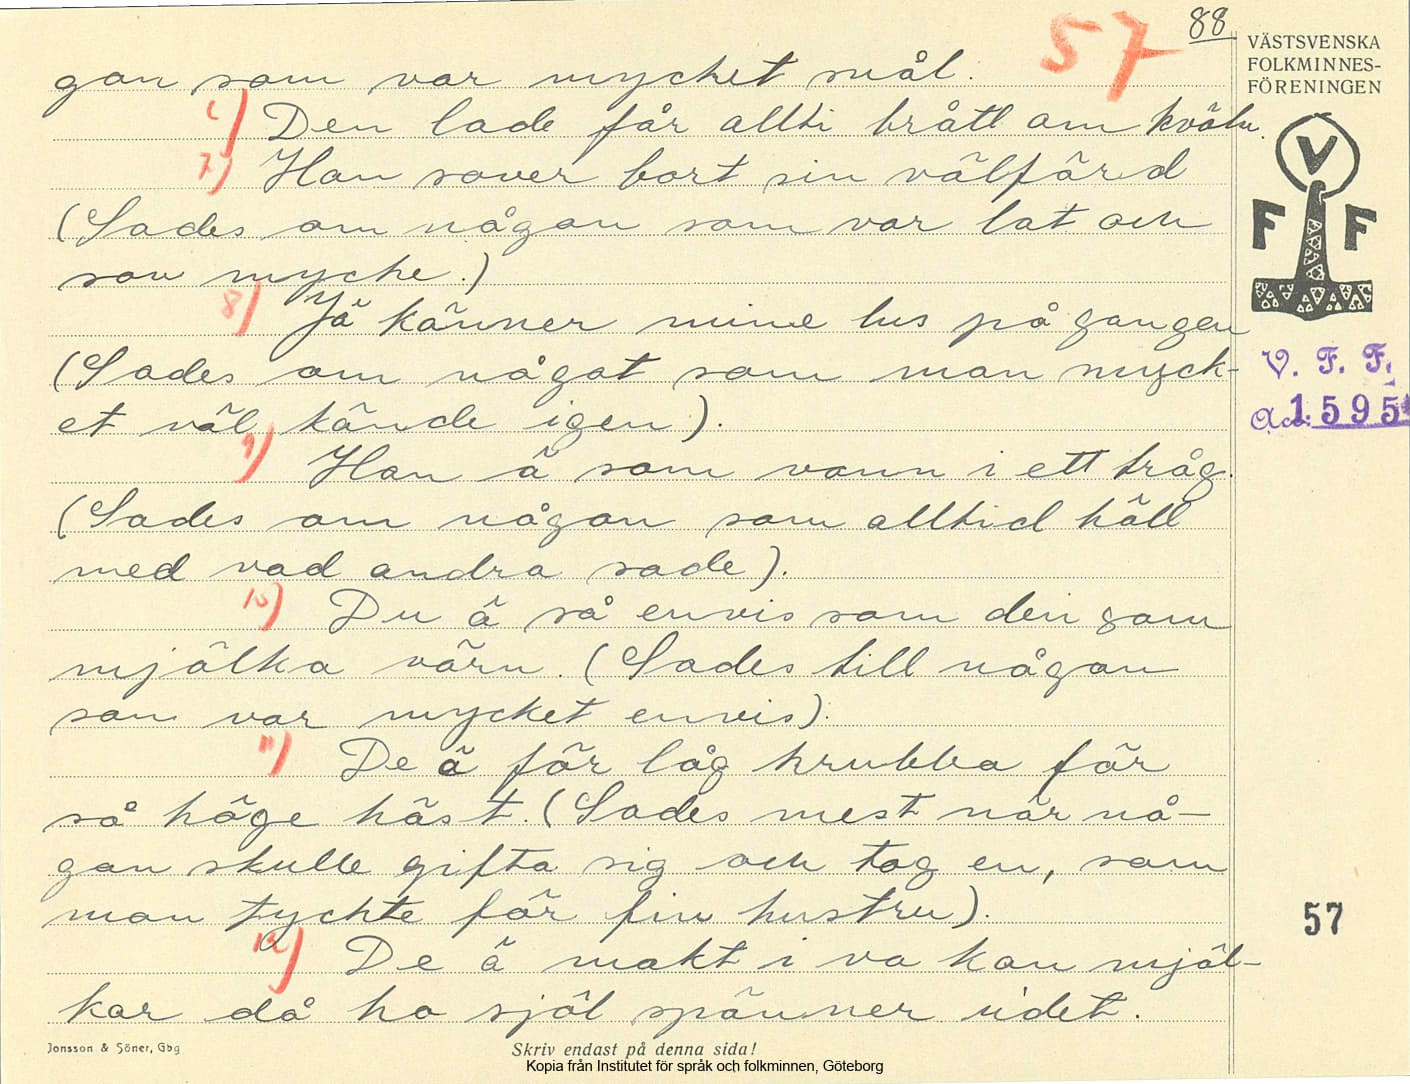 88
57
VÄSTSVENSKA
FOLKMINNES-
FÖRENINGEN
gon som var mycket snål.
6) Den lade får allti brått om kväln.
7) Han sover bort sin välfärd
(Sades om någon som var lat och
sov mycke.)
8) Jä känner mine lus på gangen
(Sades om någat som man myck-
et väl kände igen).
9) Han ä som vann i ett tråg.
(Sades om någon som alltid höll
med vad andra sade).
10) Du ä så envis som den som
mjölka värn. (Sades till någon
som var mycket envis).
11) De ä för låg krubba för
så höge häst. (Sades mest när nå-
gon skulle gifta sig och tog en, som
man tyckte för fin hustru).
12) De ä makt i va kon mjöl-
kar då ho själ spänner udet.
V F F
V. F. F.
Acc. 1595
57
Jonsson & Söner, Gbg
Skriv endast på denna sida!
Kopia från Institutet för språk och folkminnen, Göteborg